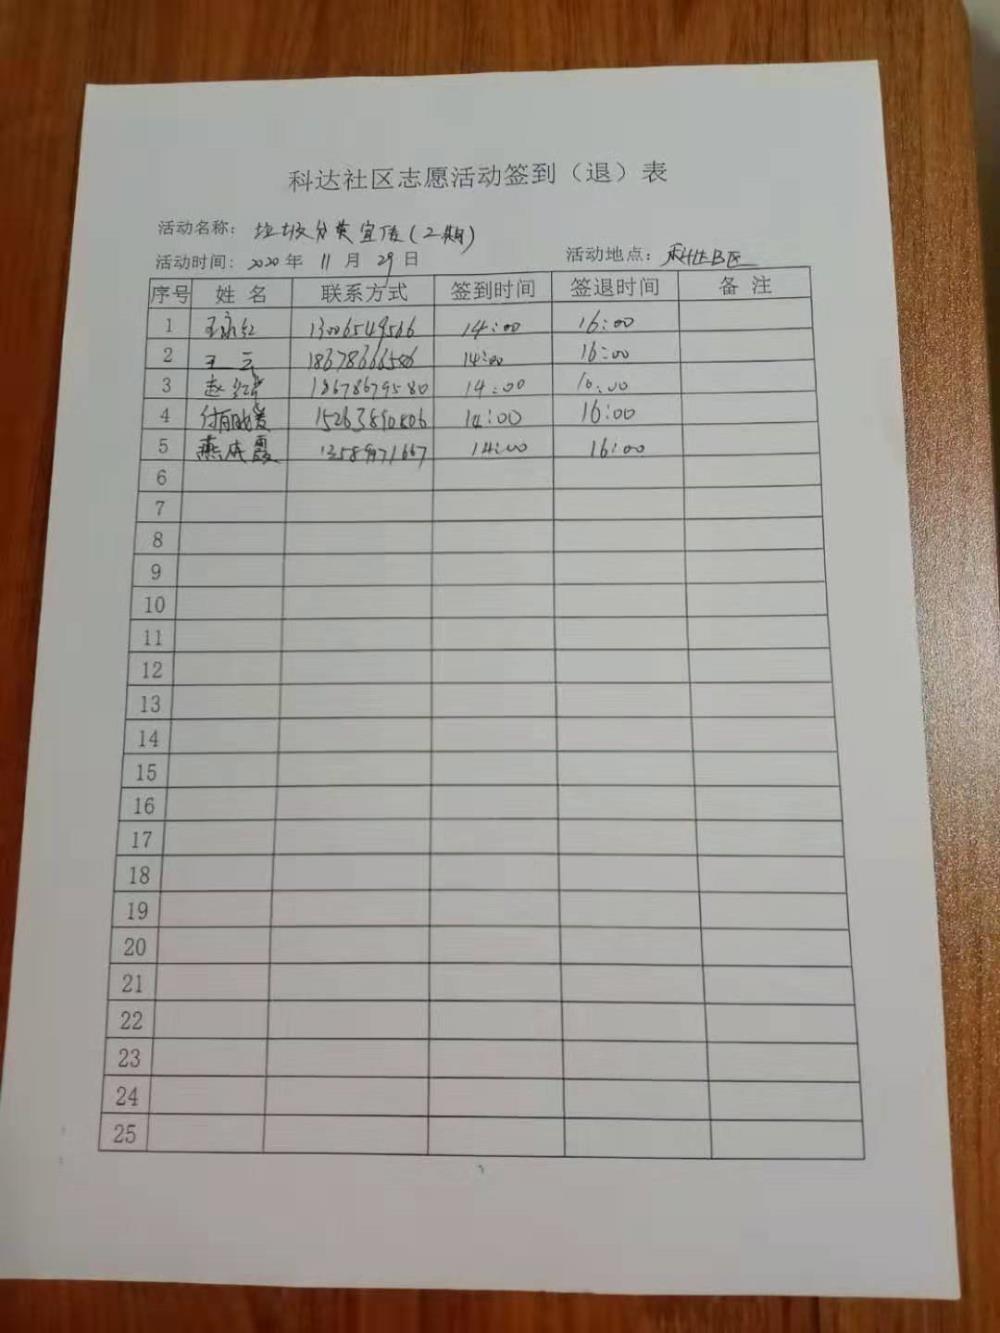 科达社区志愿活动签到（退）表
活动名称：垃圾分类宣传(2期)
活动时间：2020年 11 月 29 日 活动地点：科达B区
序号 姓 名 联系方式 签到时间 签退时间 备 注
1 王永红 13006549566 14:00 16:00
2 王云 14:00 16:00
3 赵 18678679580 14:00 16:00
4 付 15263890806 14:00 16:00
5 燕成霞 14:00 16:00
6
7
8
9
10
11
12
13
14
15
16
17
18
19
20
21
22
23
24
25